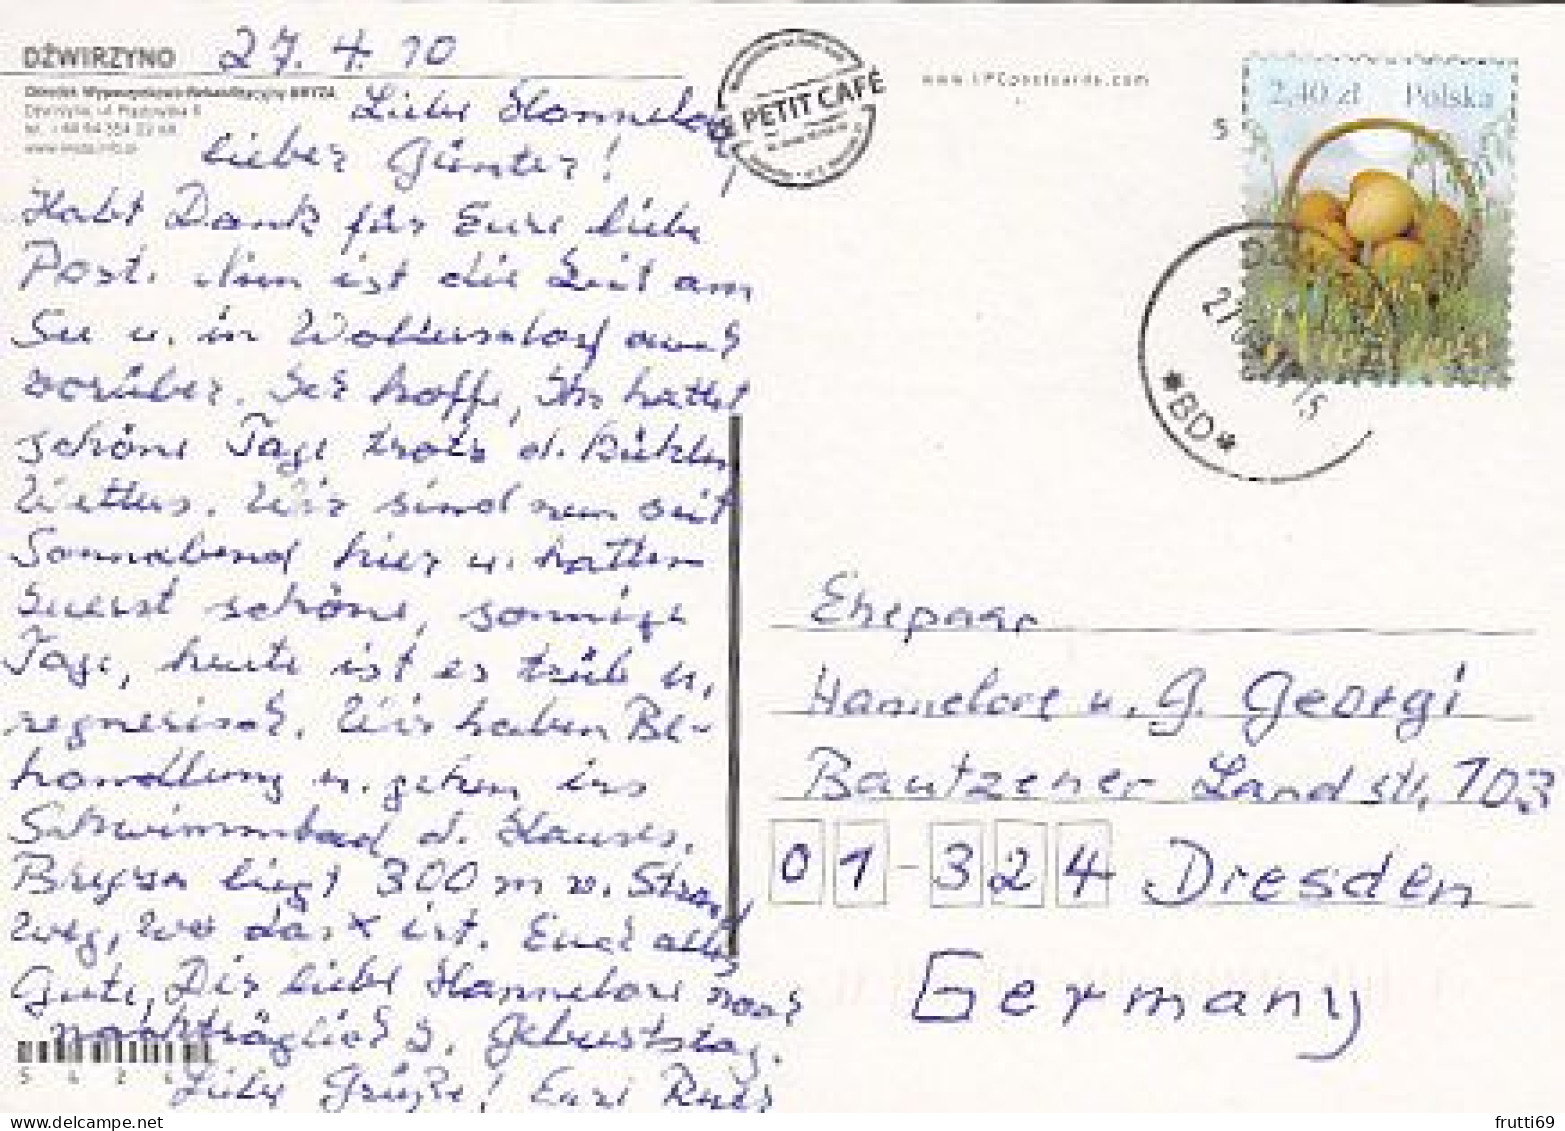 DŹWIRZYNO 27. 4. 10
Ośrodek Wypoczynkowo-Rehabilitacyjny BRYZA
PETIT CAFÉ
www.IPCpostcards.com
2,40 zł Polska
5
Liebe Hannelore,
lieber Günter!
Habt Dank für Eure liebe
Post. Nun ist die Zeit am
See u. in Woltersdorf auch
vorüber. Ich hoffe, Ihr hattet
schöne Tage trotz d. kühlen
Wetters. Wir sind nun seit
Sonnabend hier u. hatten
zuerst schöne, sonnige
Tage, heute ist es trüb u.
regnerisch. Wir haben Be-
handlung u. gehen ins
Schwimmbad d. Hauses.
Bryza liegt 300 m v. Strand
weg, wo das x ist. Euch alles
Gute, Dir liebe Hannelore noch
nachträglich z. Geburtstag.
Liebe Grüße! Eure
*BD*
Ehepaar
Hannelore u. G. Georgi
Bautzener Landstr. 103
01-324 Dresden
Germany
frutti69